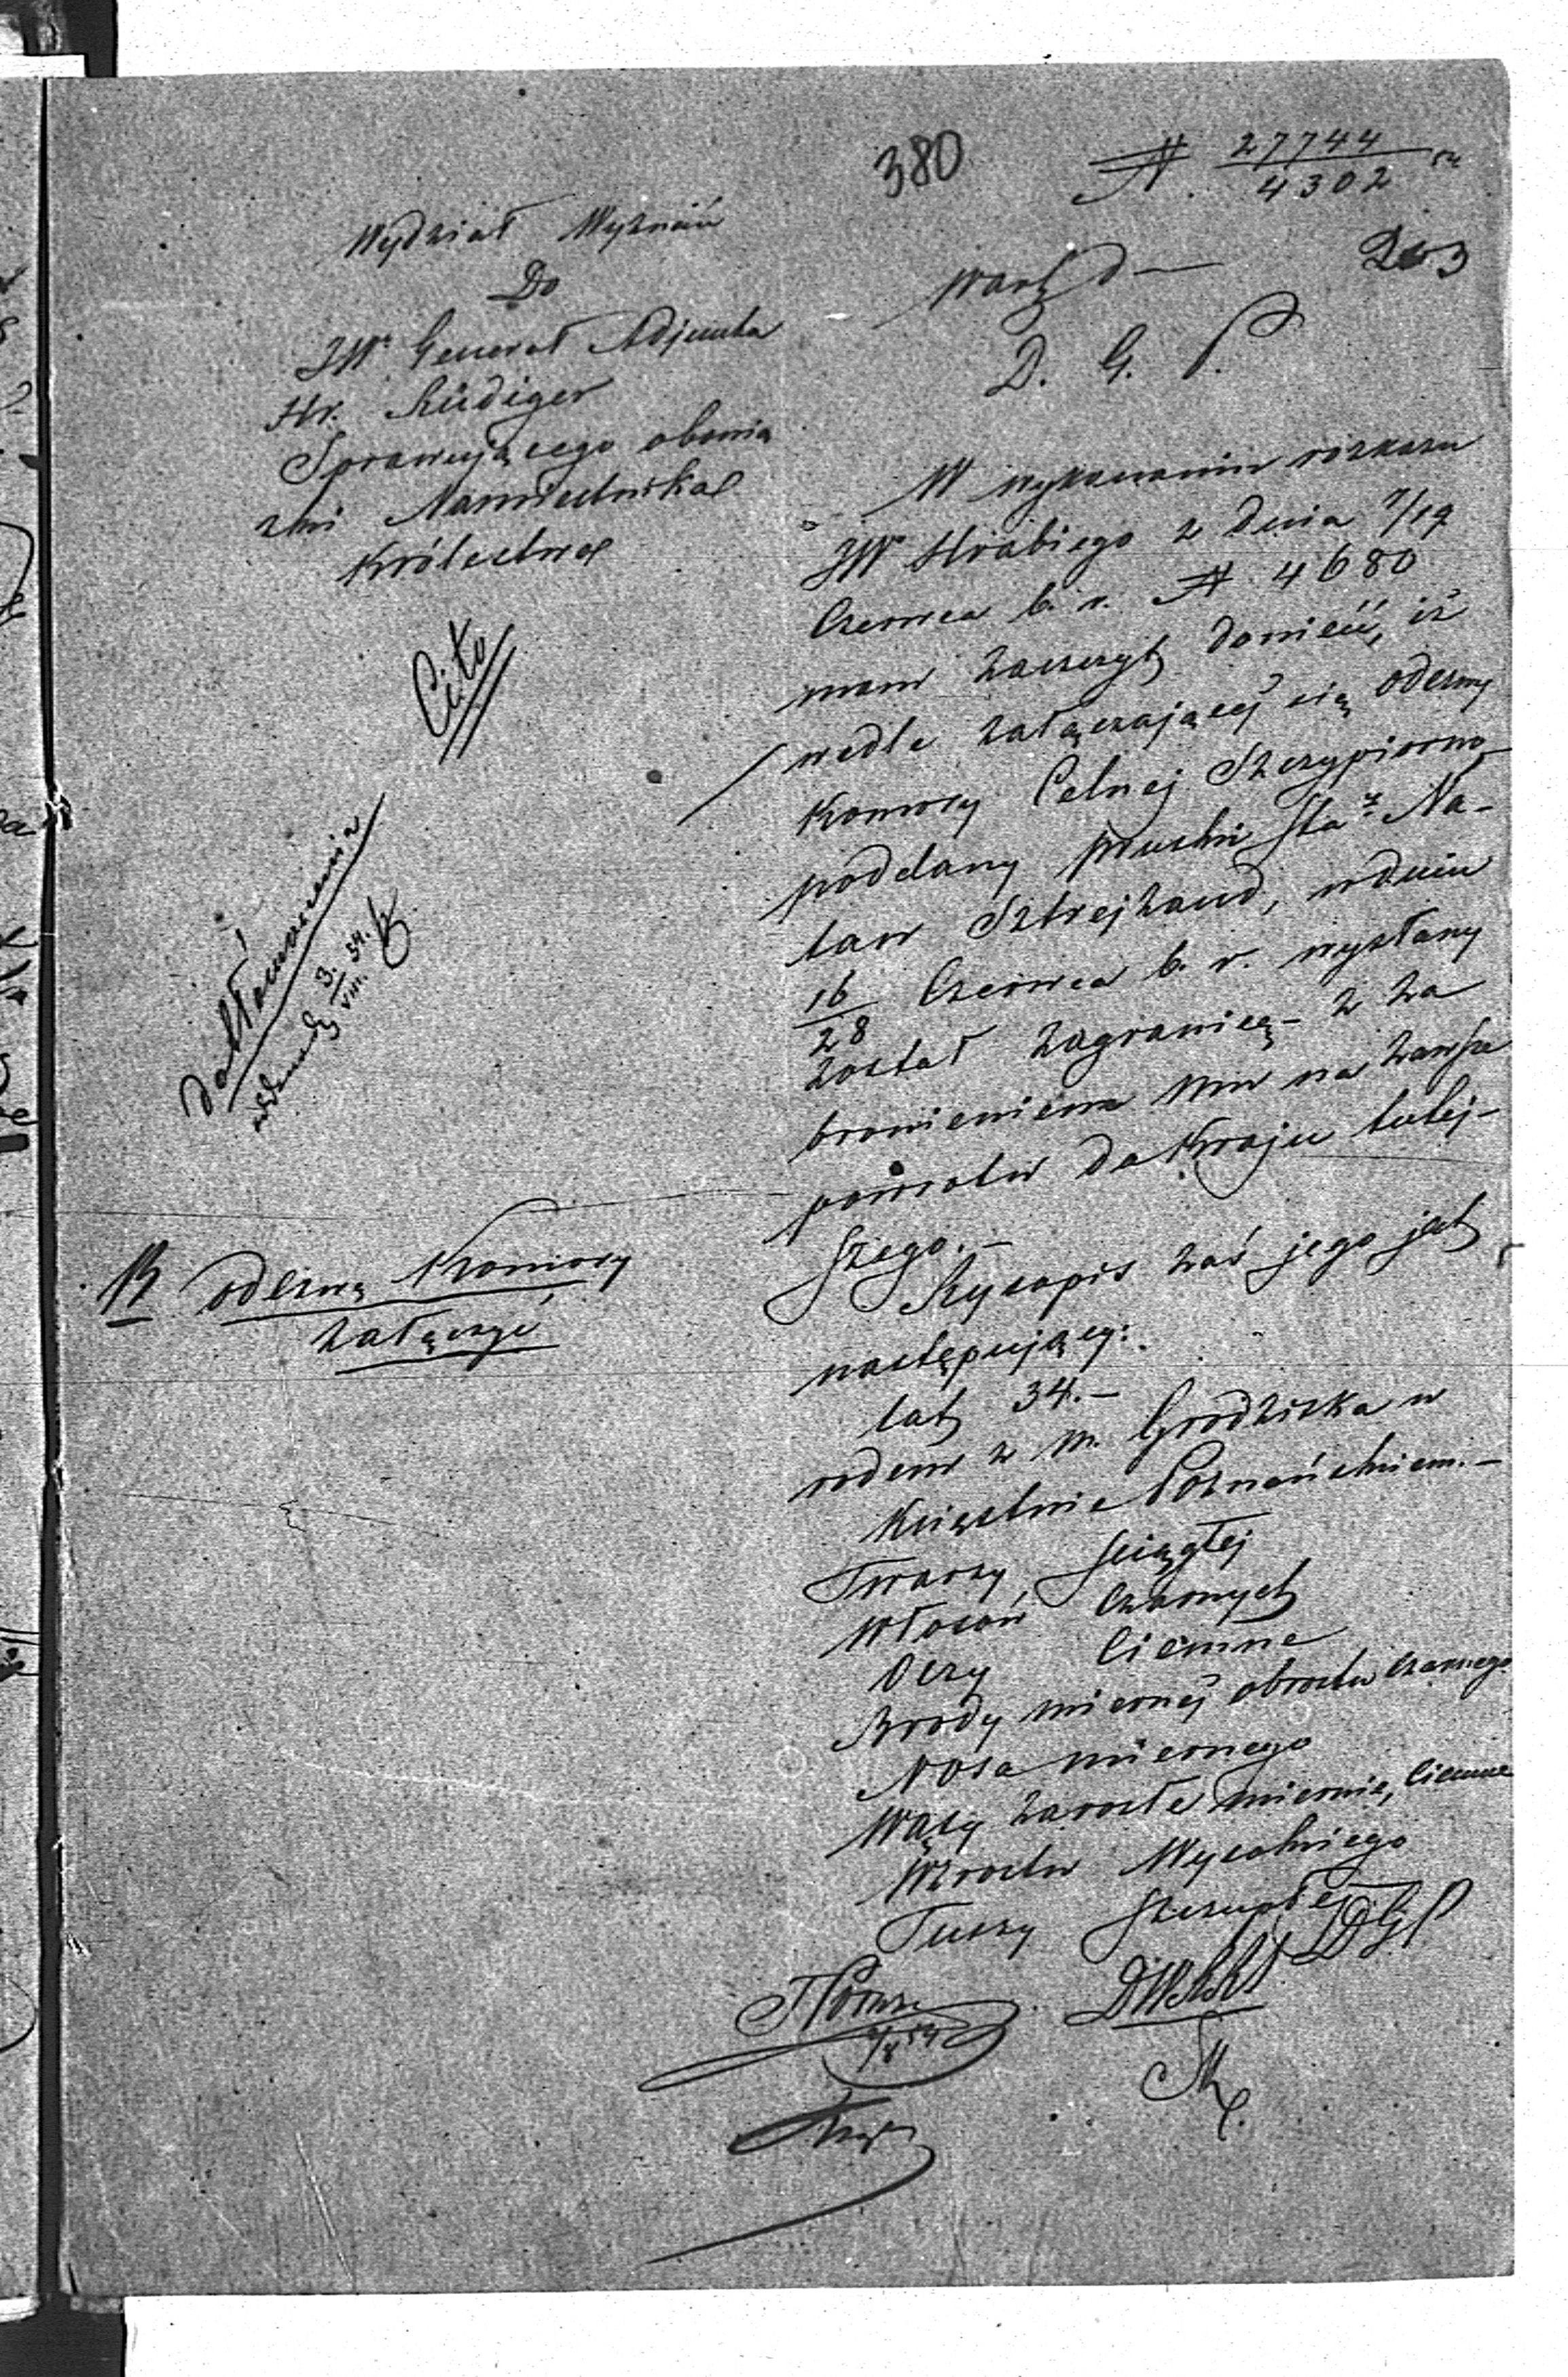 380
N. 27744/4302 54
203
Wydział Wyznań
Do
JW. Generał Adjunta
Hr. Rüdiger
Sprawującego obowią
zki Namiestnika
Królestwa
Cito
Do tłómaczenia
3/VIII. 54.
B odezwę Komory
załączyć
Warsz d —
D. G. P.
W wykonaniu rozkazu
JW Hrabiego z dnia 7/19
Czerwca b. r. N 4680
mam zaszczyt donieść, iż
wedle załączającéj się odezwy
Komory Celnej Szczypiorno
poddany pruski Sta: Na-
tan Sztrejzand, w dniu
16/28 Czerwca b. r. wysłany
został zagranicę – z za
bronieniem mu na zawsze
powrotu do Kraju tutej-
szego. –
Rysopis zaś jego jest
następujący:
lat 34. –
rodem z m. Grodziska w
Księstwie Poznańskiem. –
Twarzy ściągłej
Włosów Czarnych
Oczy Ciemne
Brody miernéj obrostu czarnego
Nosa miernego
Wąsy zarosłe miernie, ciemne
Wzrostu Wysokiego
Tuszy szczupłej
DGP